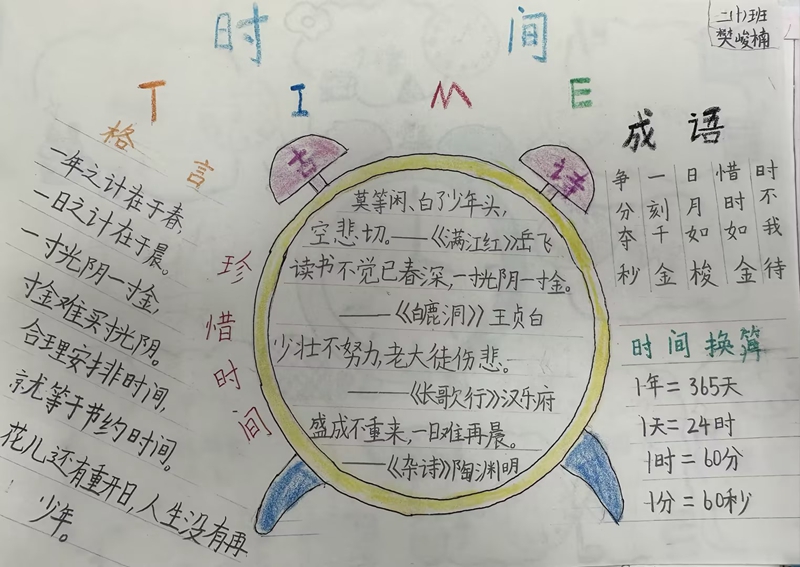 时间
TIME
二(十)班
樊峻楠
格言
一年之计在于春,
一日之计在于晨。
一寸光阴一寸金,
寸金难买寸光阴。
合理安排时间,
就等于节约时间。
花儿还有重开日,人生没有再
少年。
珍惜时间
古诗
莫等闲、白了少年头,
空悲切。——《满江红》岳飞
读书不觉已春深,一寸光阴一寸金。
——《白鹿洞》王贞白
少壮不努力,老大徒伤悲。
——《长歌行》汉乐府
盛成不重来,一日难再晨。
——《杂诗》陶渊明
成语
争分夺秒
一刻千金
日月如梭
惜时如金
时不我待
时间换算
1年=365天
1天=24时
1时=60分
1分=60秒